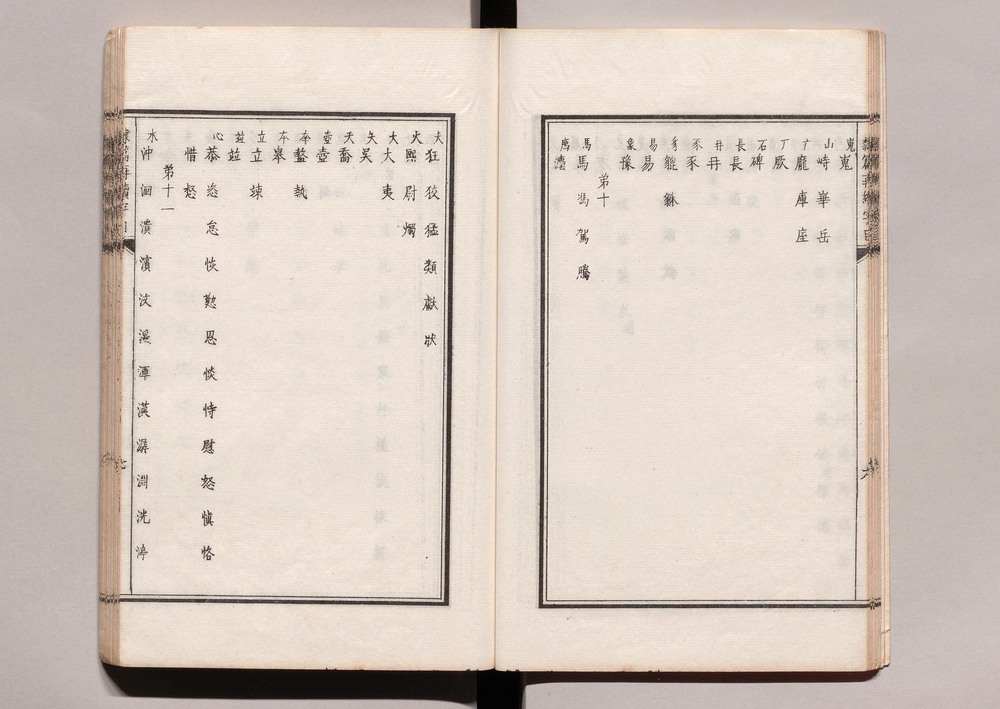 嵬嵬
山峙華岳
广龐庫座
厂厥
石碑
長長
冄冄
豕豕
豸貔貅
易易
象豫
第十
馬馬馮駕騰
廌灋
犬狂狡猛類獻狀
火熙尉燭
大大夷
夭吴
夭喬
壺壺
㚔盩執
夲皋
立立竦
竝竝
心恭恣怠恢懃恩惔恃慰怒慎恪
惜怒
第十一
水沖洄濆濱汶漯潭漢潺淵洸渟
六
七